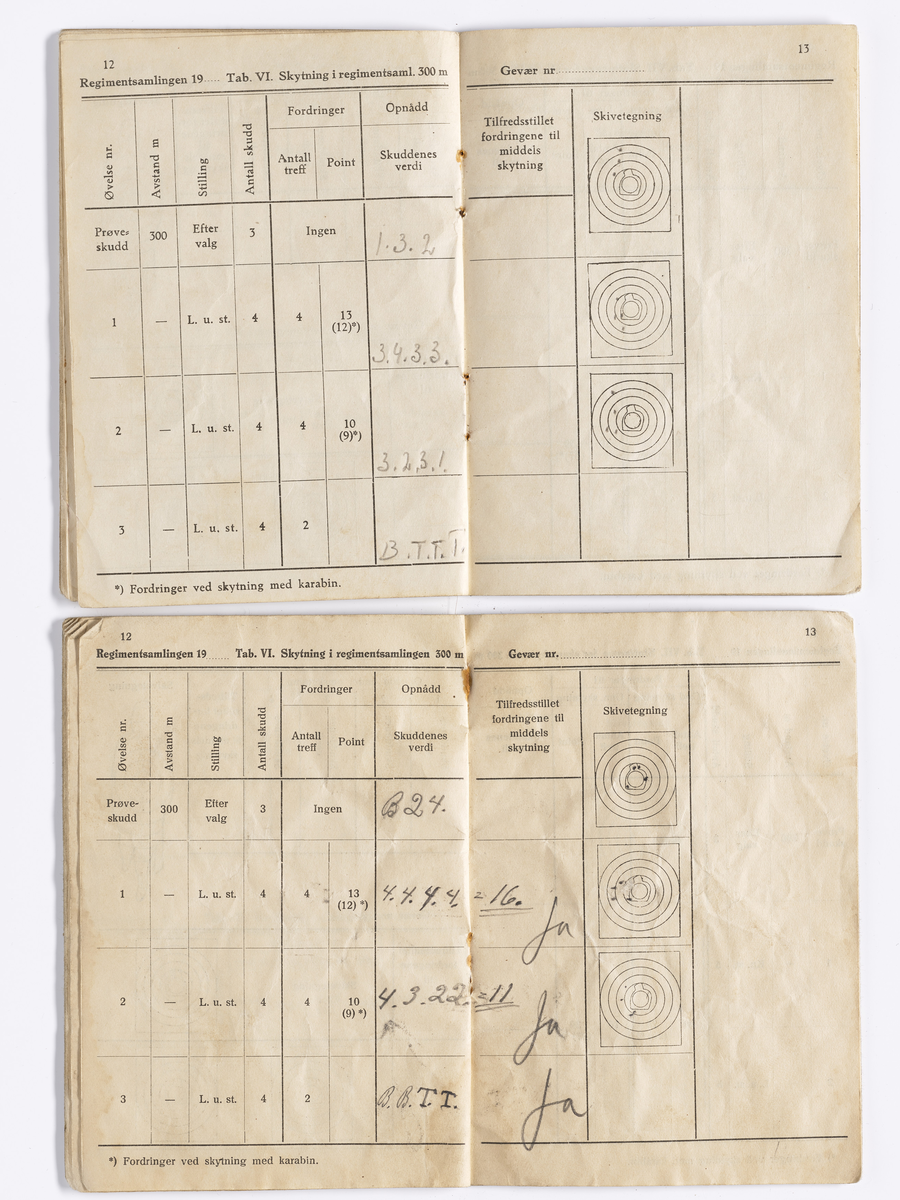 12
Regimentsamlingen 19..... Tab. VI. Skytning i regimentsaml. 300 m
Øvelse nr.
Avstand m
Stilling
Antall skudd
Fordringer
Antall
treff
Point
Opnådd
Skuddenes
verdi
Prøve-
skudd
300
Efter
valg
3
Ingen
1.3.2
1
—
L. u. st.
4
4
13
(12)*)
3.4.3.3.
2
—
L. u. st.
4
4
10
(9)*)
3.2.3.1.
3
—
L. u. st.
4
2
B.T.T.T.
*) Fordringer ved skytning med karabin.
13
Gevær nr.........................
Tilfredsstillet
fordringene til
middels
skytning
Skivetegning
12
Regimentsamlingen 19...... Tab. VI. Skytning i regimentsamlingen 300 m
Øvelse nr.
Avstand m
Stilling
Antall skudd
Fordringer
Antall
treff
Point
Opnådd
Skuddenes
verdi
Prøve-
skudd
300
Efter
valg
3
Ingen
B 2 4.
1
—
L. u. st.
4
4
13
(12) *)
4.4.4.4. = 16.
Ja
2
—
L. u. st.
4
4
10
(9) *)
4.3.22. = 11
Ja
3
—
L. u. st.
4
2
B.B.T.T.
Ja
*) Fordringer ved skytning med karabin.
13
Gevær nr.........................
Tilfredsstillet
fordringene til
middels
skytning
Skivetegning